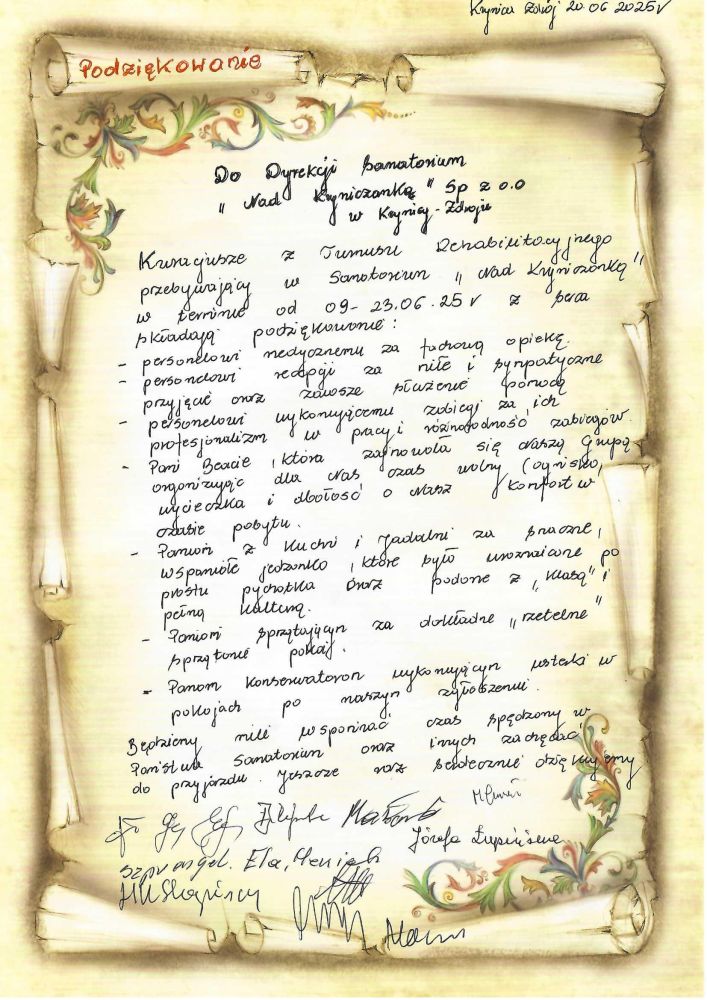 Krynica Zdrój 20.06.2025r
Podziękowanie
Do Dyrekcji Sanatorium
"Nad Kryniczanką" Sp z o.o
w Krynicy-Zdroju
Kuracjusze z Turnusu Rehabilitacyjnego
przebywający w Sanatorium "Nad Kryniczanką"
w terminie od 09-23.06.25r z serca
składają podziękowanie:
- personelowi medycznemu za fachową opiekę.
- personelowi recepcji za miłe i sympatyczne
przyjęcie oraz zawsze służenie pomocą
- personelowi wykonującemu zabiegi za ich
profesjonalizm w pracy i różnorodność zabiegów.
- Pani Beacie, która zajmowała się Naszą Grupą
organizując dla Nas czas wolny (ognisko,
wycieczka i dbałość o Nasz komfort w
czasie pobytu.
- Paniom z Kuchni i Jadalni za smaczne,
wspaniałe jedzonko, które było urozmaicone po
prostu pychotka oraz podane z "klasą" i
pełną kulturą.
- Paniom sprzątającym za dokładne "rzetelne"
sprzątanie pokoi.
- Panom Konserwatorom wykonującym usterki w
pokojach po naszym zgłoszeniu.
Będziemy mile wspominać czas spędzony w
Państwa Sanatorium oraz innych zachęcać
do przyjazdu. Jeszcze raz serdecznie dziękujemy
Józefa
Ela